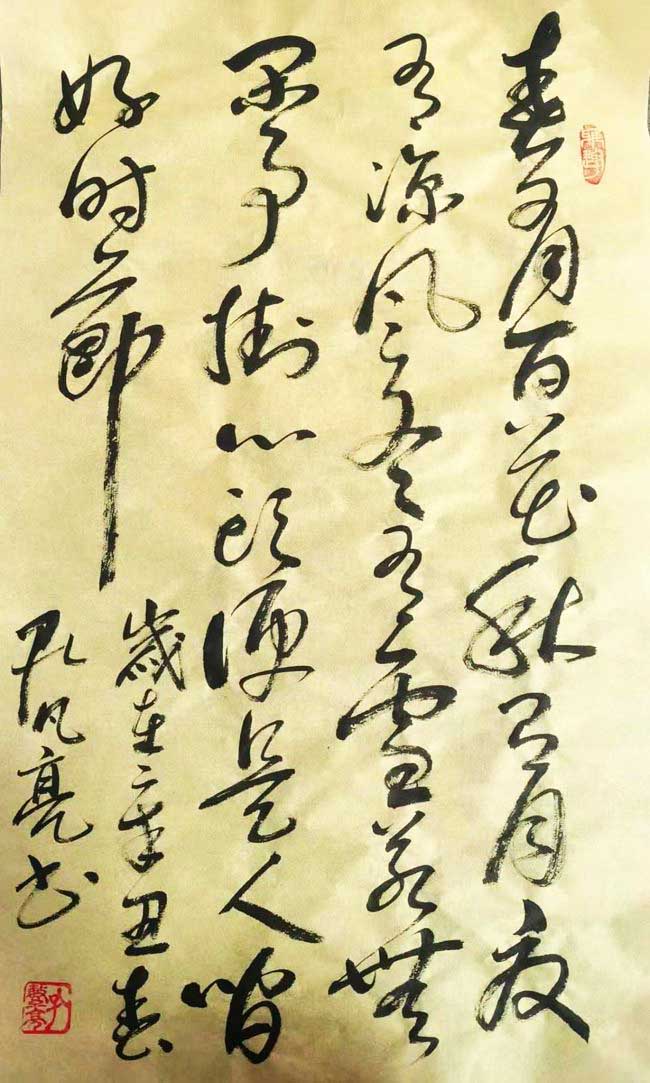 春有百花秋有月夏
有凉风冬有雪若無
闲事掛心头便是人间
好时節
歲在辛丑春
孔凡亮书